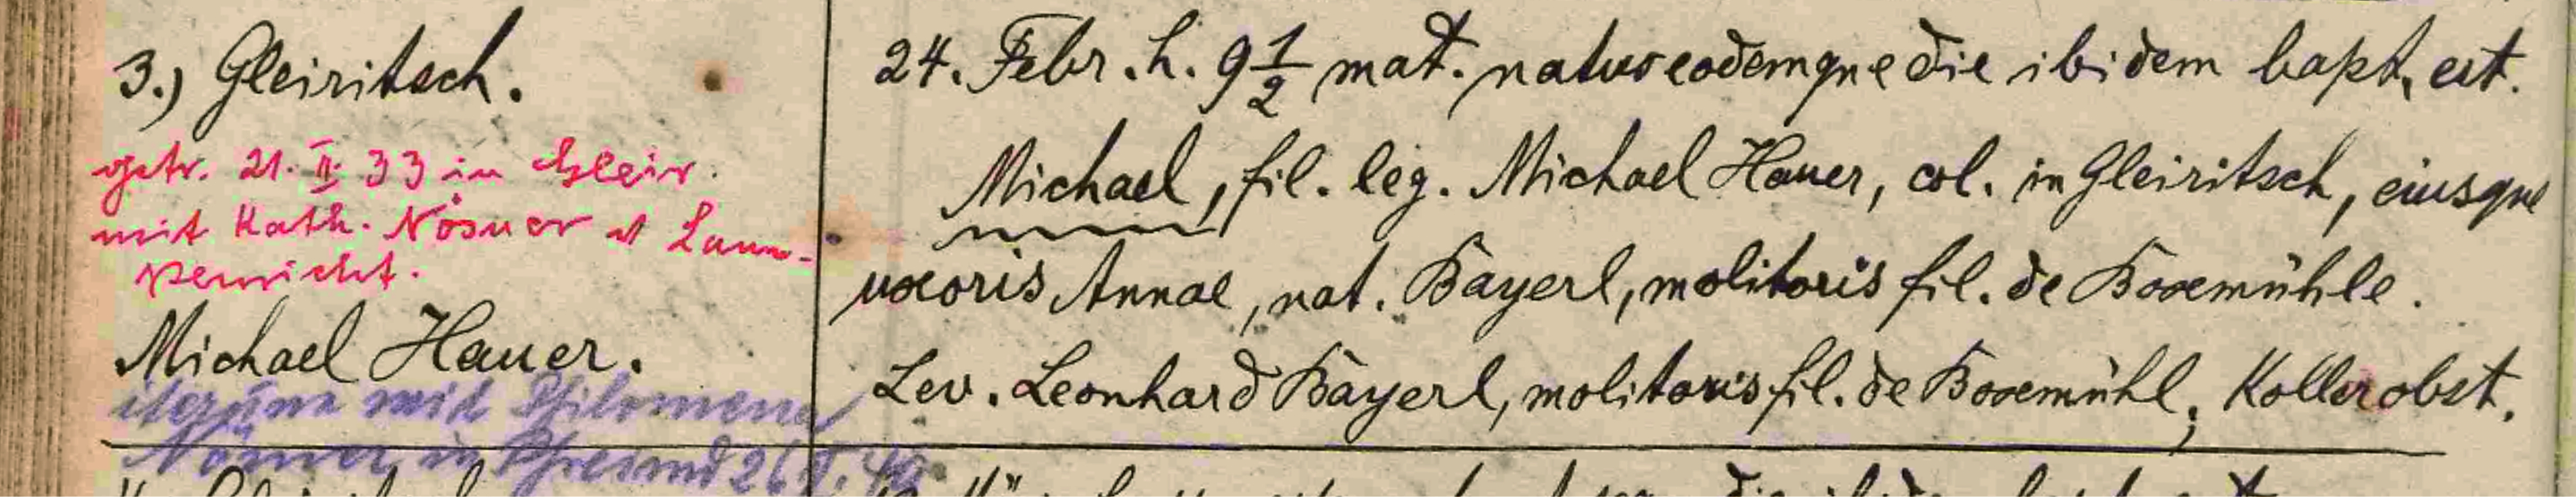 3.) Gleiritsch.
getr. 21. II. 33 in Gleir.
mit Kath. Nösner
Michael Hauer.
iterum mit Philomena
in Pfreimd
24. Febr. h. 9 1/2 mat. natus eodemque die ibidem bapt. est.
Michael, fil. leg. Michael Hauer, col. in Gleiritsch, eiusque
uxoris Annae, nat. Bayerl, molitoris fil. de Boxemühle.
Lev. Leonhard Bayerl, molitoris fil. de Boxemühl; Koller obst.